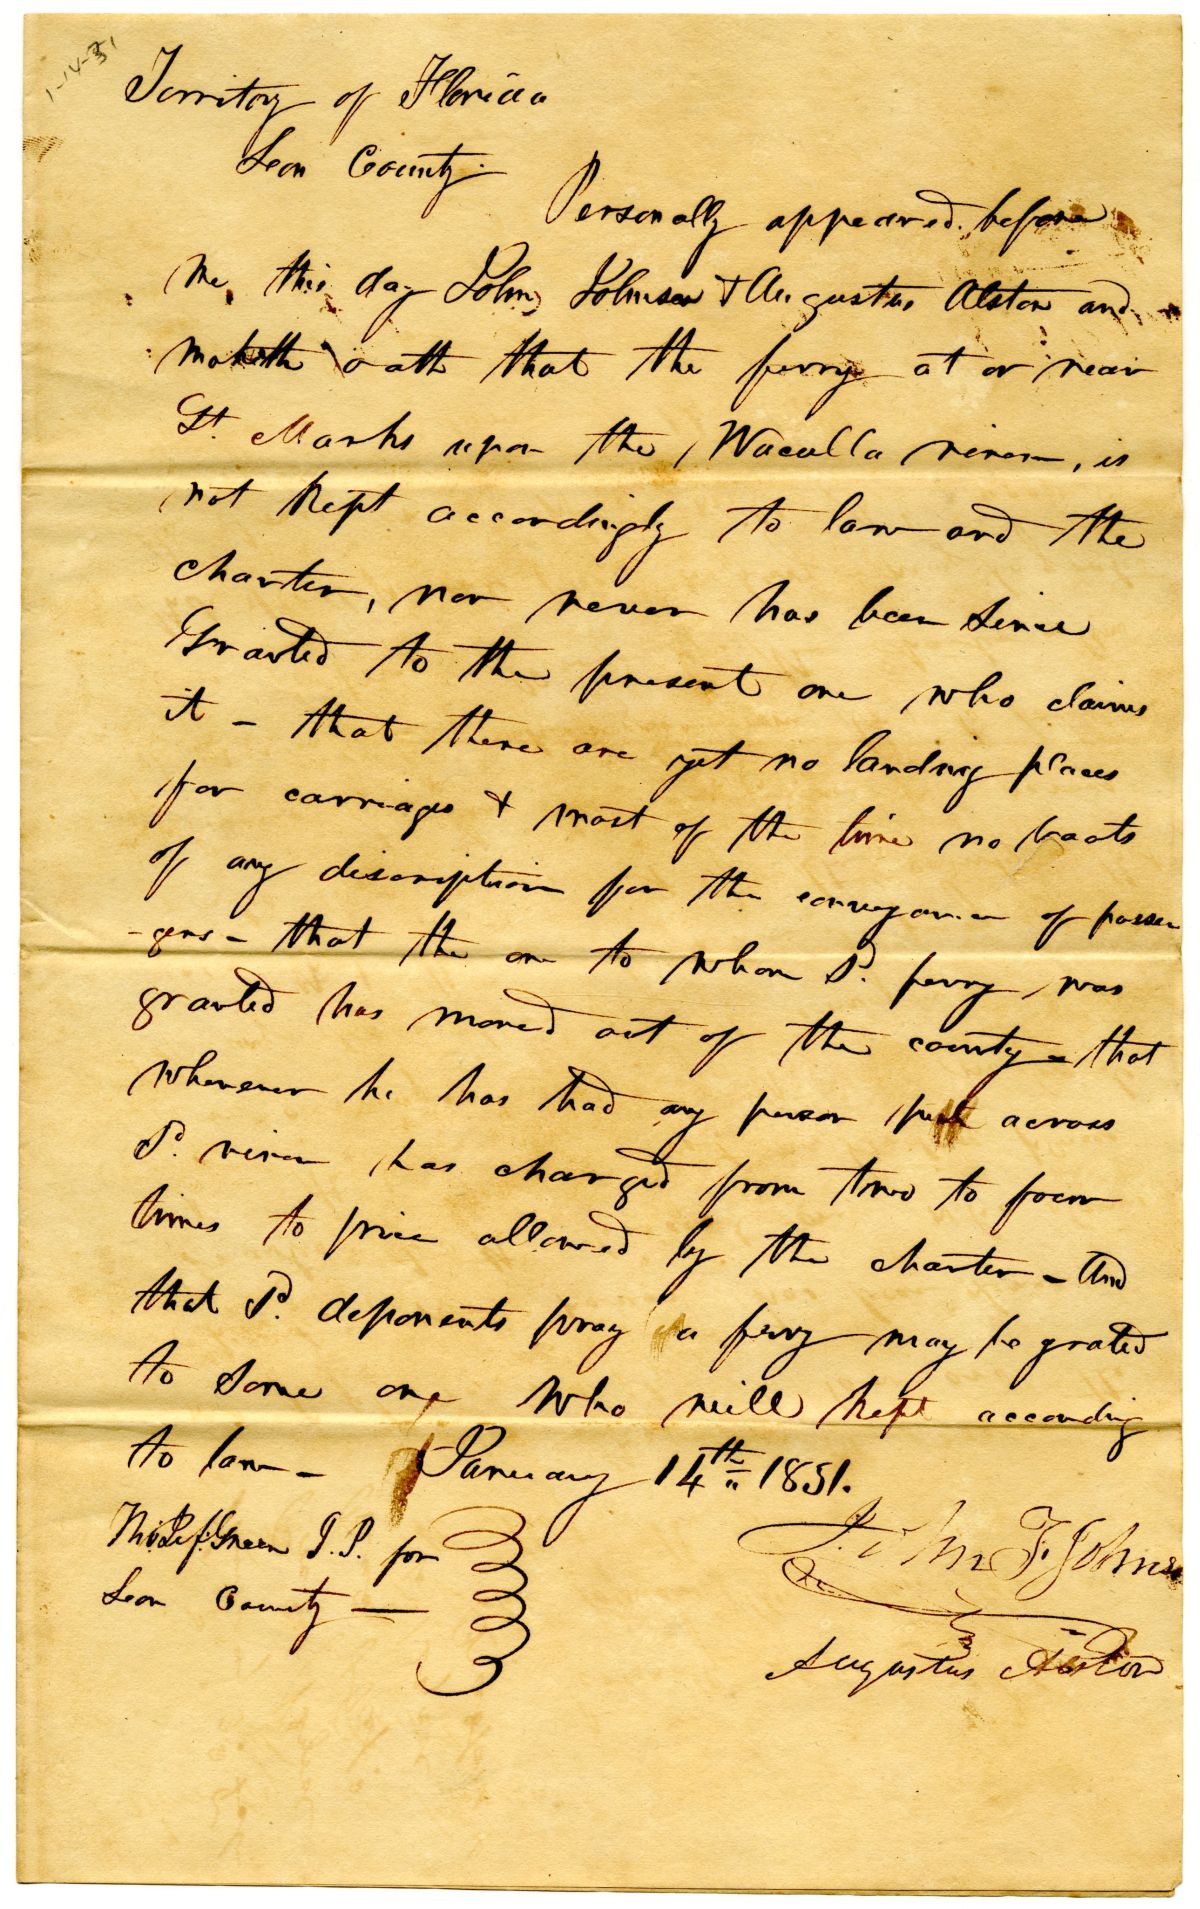 1-14-31
Territory of Florida
Leon County.
Personally appeared before
me this day John Johnson & Augustus Alston and
maketh oath that the ferry at or near
St. Marks upon the Waculla river, is
not kept accordingly to law and the
charter, nor never has been since
Granted to the present one who claims
it - that there are yet no landing places
for carriages & most of the time no boats
of any discription for the conveyance of passen
-gers - that the one to whom Sd. ferry was
granted has moved out of the county - that
whenever he has had any person put across
Sd. river has charged from two to four
times to price allowed by the charter - And
that Sd. deponents pray a ferry may be grated
to some one who will kept according
to law - January 14th 1831.
Green J. P. for
Leon County —
John F. Johnson
Augustus Alston